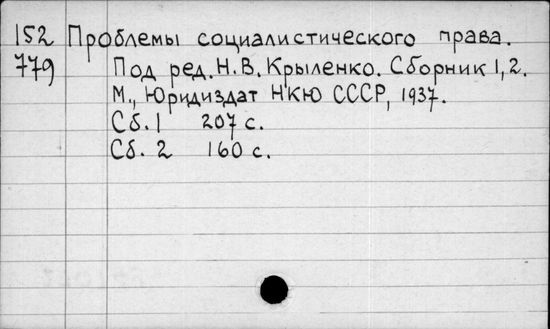 152 Проблемы социалистического права.
779 Под ред. Н.В. Крыленко. Сборник 1, 2.
М., Юридиздат НКЮ СССР, 1937.
Сб. 1 207 с.
Сб. 2 160 с.